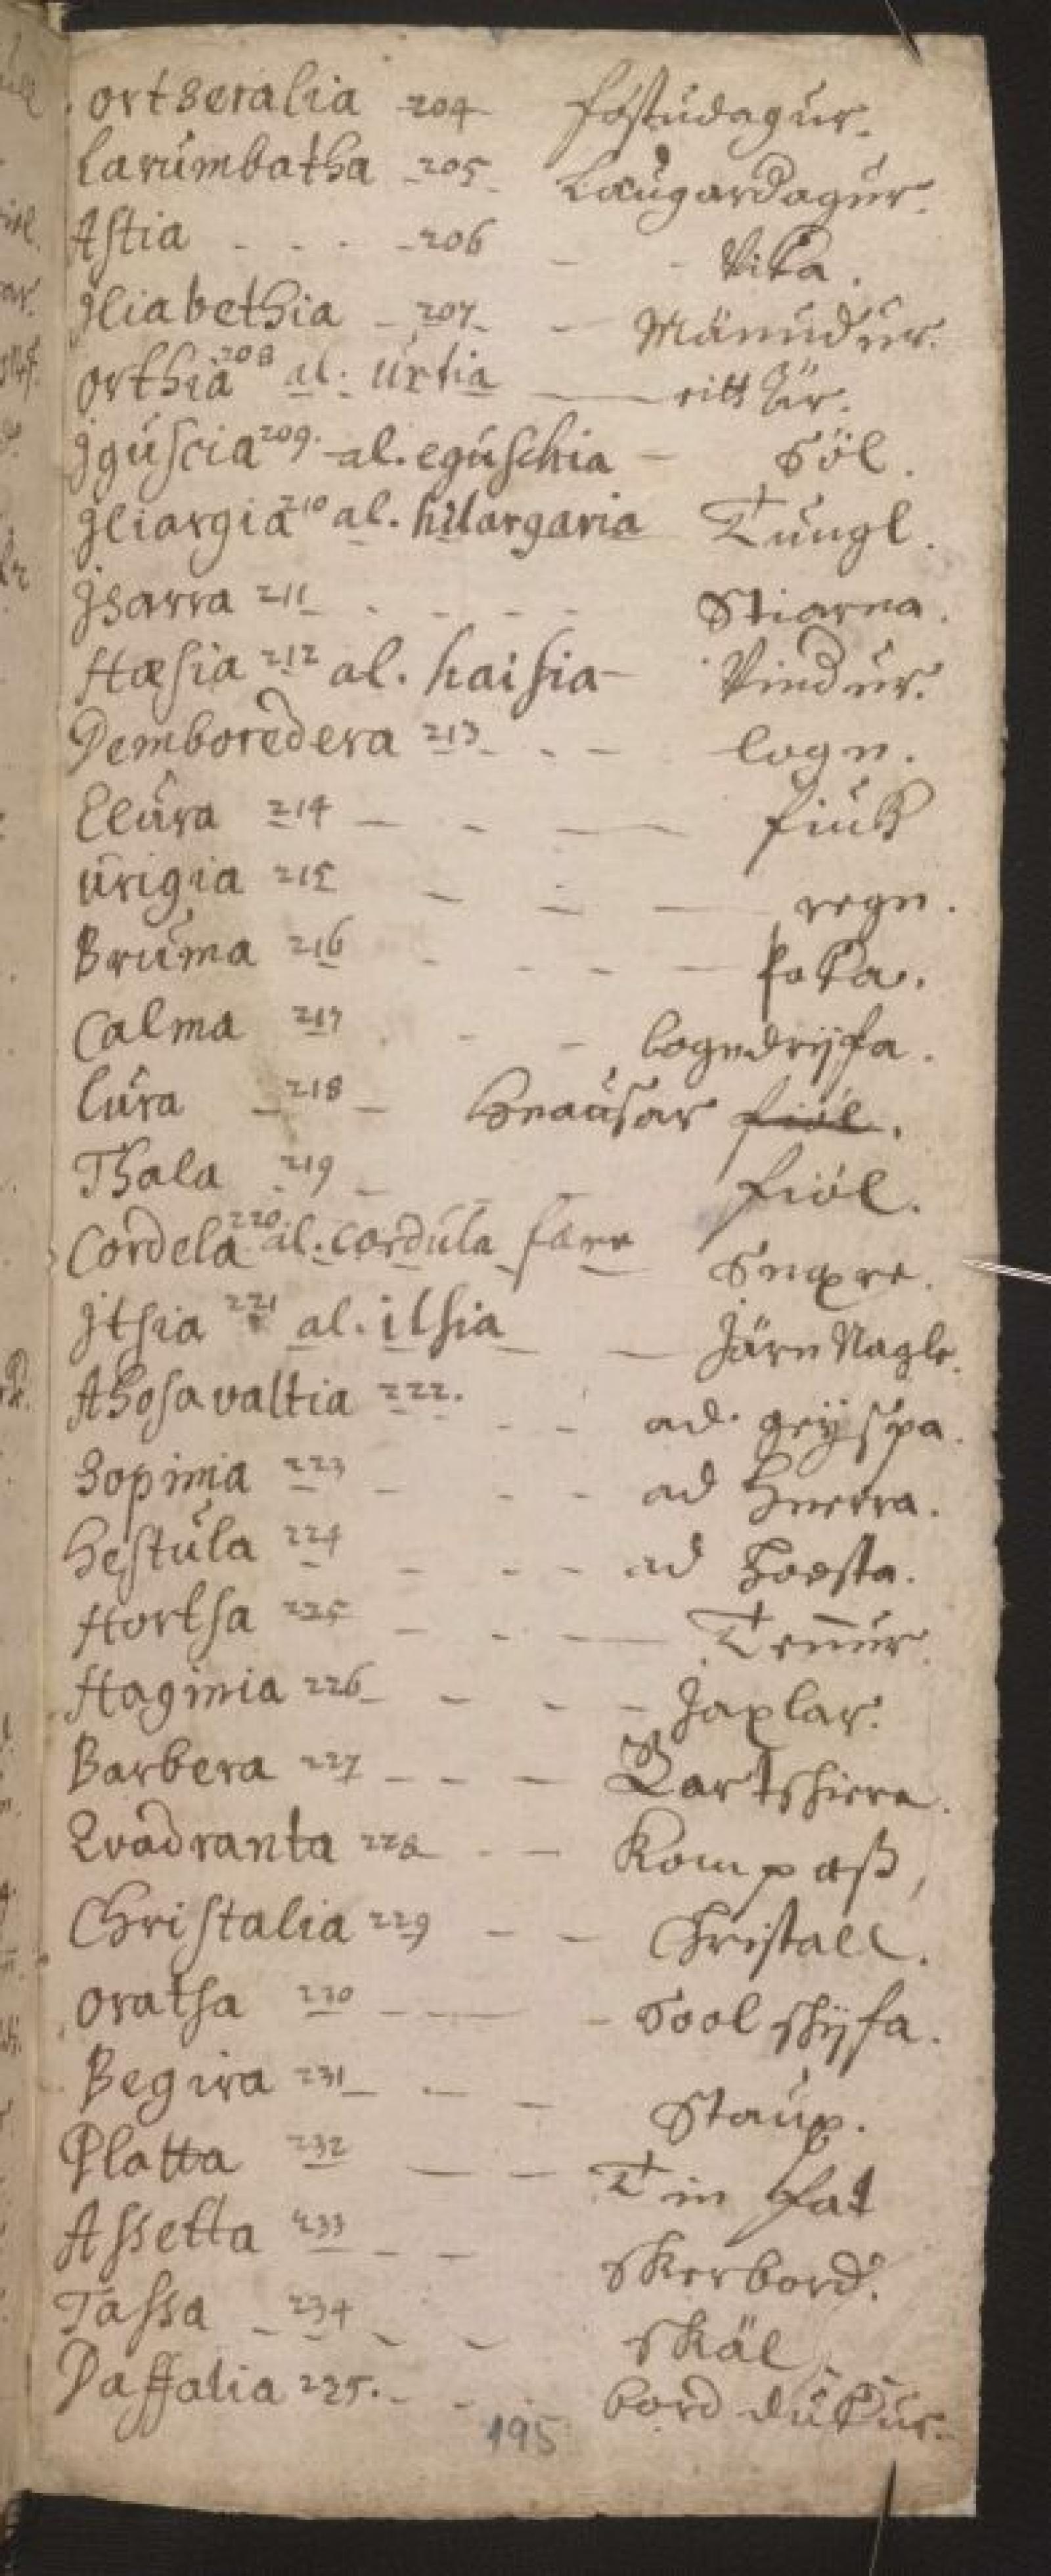 ortseralia 204 föstudagur.
Larumbatha 205 Laugardagur.
Astia 206 vika.
Jliabethia 207 Mänudur.
orthia 208 al. urtia eitt är.
Jguscia 209. al. eguschia Söl.
Jliargia 210 al. hilargaria Tungl.
Jsarra 211 Stiarna.
Hæsia 212 al. haisia Vindur.
Demboredera 213 logn.
Elura 214 fiuk
urigia 215 regn.
Bruma 216 þoka.
Calma 217 logndrijfa.
Cura 218 Hnausar fiöl.
Thala 219 fiöl.
Cordela 220. al. cordula Snære.
Jtsia 221 al. ilsia Järn Nagle.
Ahosavaltia 222. ad geijspa.
Sopinia 223 ad Hnerra.
hestula 224 ad hoosta.
Hortsa 225 Tennur.
Haginia 226 Jaxlar.
Barbera 227 Bartskiere.
Qvadranta 228 Kompass,
Christalia 229 Christall.
oratsa 230 Sool skijfa.
Begira 231 Staup.
Platta 232 Tin fat
Assetta 233 Skerbord.
Tassa 234 Skäl
Daffalia 235. bord dukur.
195